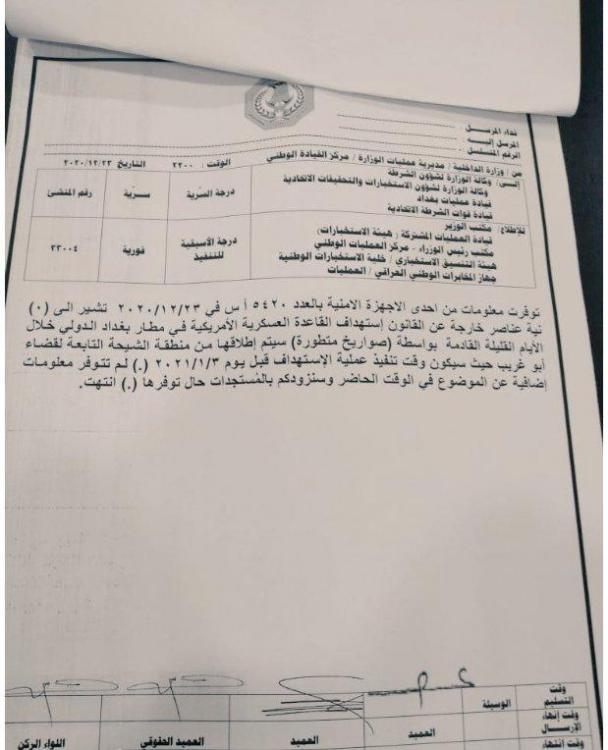 نداء المرسل :
المرسل إليه :
الرقم المتسلسل :
من / وزارة الداخلية / مديرية عمليات الوزارة / مركز القيادة الوطني
الوقت : ٢٢٠٠
التاريخ ٢٠٢٠/١٢/٢٣
إلـى / وكالة الوزارة لشؤون الشرطة
وكالة الوزارة لشؤون الاستخبارات والتحقيقات الاتحادية
قيادة عمليات بغداد
قيادة قوات الشرطة الاتحادية
درجة السرية
سـرّية
رقم المنشئ
للإطلاع/ مكتب الوزير
قيادة العمليات المشتركة / هيئة الاستخبارات
مكتب رئيس الوزراء - مركز العمليات الوطني
هيئة التنسيق الاستخباري / خلية الاستخبارات الوطنية
جهاز المخابرات الوطني العراقي / العمليات
درجة الأسبقية
للتنفيذ
فورية
٢٣٠٠٤
توفرت معلومات من احدى الاجهزة الامنية بالعدد ٥٤٢٠ أ س في ٢٠٢٠/١٢/٢٣ تشير الى (٠)
نية عناصر خارجة عن القانون إستهداف القاعدة العسكرية الأمريكية في مطار بغداد الدولي خلال
الأيام القليلة القادمة بواسطة (صواريخ متطورة) سيتم إطلاقها من منطقة الشيحة التابعة لقضاء
أبو غريب حيث سيكون وقت تنفيذ عملية الإستهداف قبل يوم ٢٠٢١/١/٣ (.) لم تتوفر معلومات
إضافية عن الموضوع في الوقت الحاضر وسنزودكم بالمُستجدات حال توفرها (.) انتهت.
وقت
التسليم
الوسيلة
وقت إنهاء
الإرسال
العميد
العميد
العميد الحقوقي
اللواء الركن
وقت إنتهاء